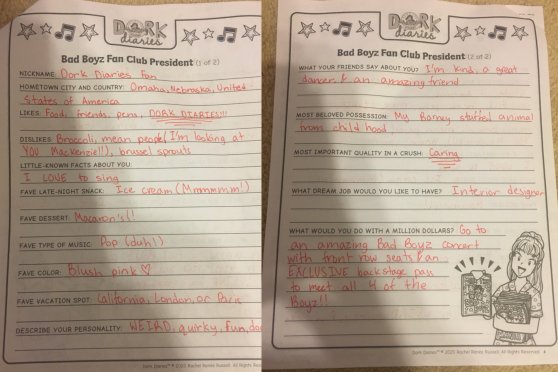 DORK
diaries
Bad Boyz Fan Club President (1 of 2)
NICKNAME: Dork Diaries Fan
HOMETOWN CITY AND COUNTRY: Omaha, Nebraska, United
States of America
LIKES: Food, friends, pens, DORK DIARIES!!!
DISLIKES: Broccoli, mean people (I'm looking at
YOU Mackenzie!!), brussel sprouts
LITTLE-KNOWN FACTS ABOUT YOU:
I LOVE to sing
FAVE LATE-NIGHT SNACK: Ice cream (Mmmmmm!)
FAVE DESSERT: Macaron's!!
FAVE TYPE OF MUSIC: Pop (duh!)
FAVE COLOR: Blush pink ♡
FAVE VACATION SPOT: California, London, or Paris
DESCRIBE YOUR PERSONALITY: WEIRD, quirky, fun,
Dork Diaries™ © 2020 Rachel Renée Russell. All Rights
DORK
diaries
Bad Boyz Fan Club President (2 of 2)
WHAT YOUR FRIENDS SAY ABOUT YOU? I'm kind, a great
dancer, & an amazing friend
MOST BELOVED POSSESSION: My Barney stuffed animal
from child hood
MOST IMPORTANT QUALITY IN A CRUSH: Caring
WHAT DREAM JOB WOULD YOU LIKE TO HAVE? Interior designer
WHAT WOULD YOU DO WITH A MILLION DOLLARS? Go to
an amazing Bad Boyz concert
with front row seats & an
EXCLUSIVE backstage pass
to meet all 4 of the
Boyz!!
Dork Diaries™ © 2020 Rachel Renée Russell. All Rights Reserved.